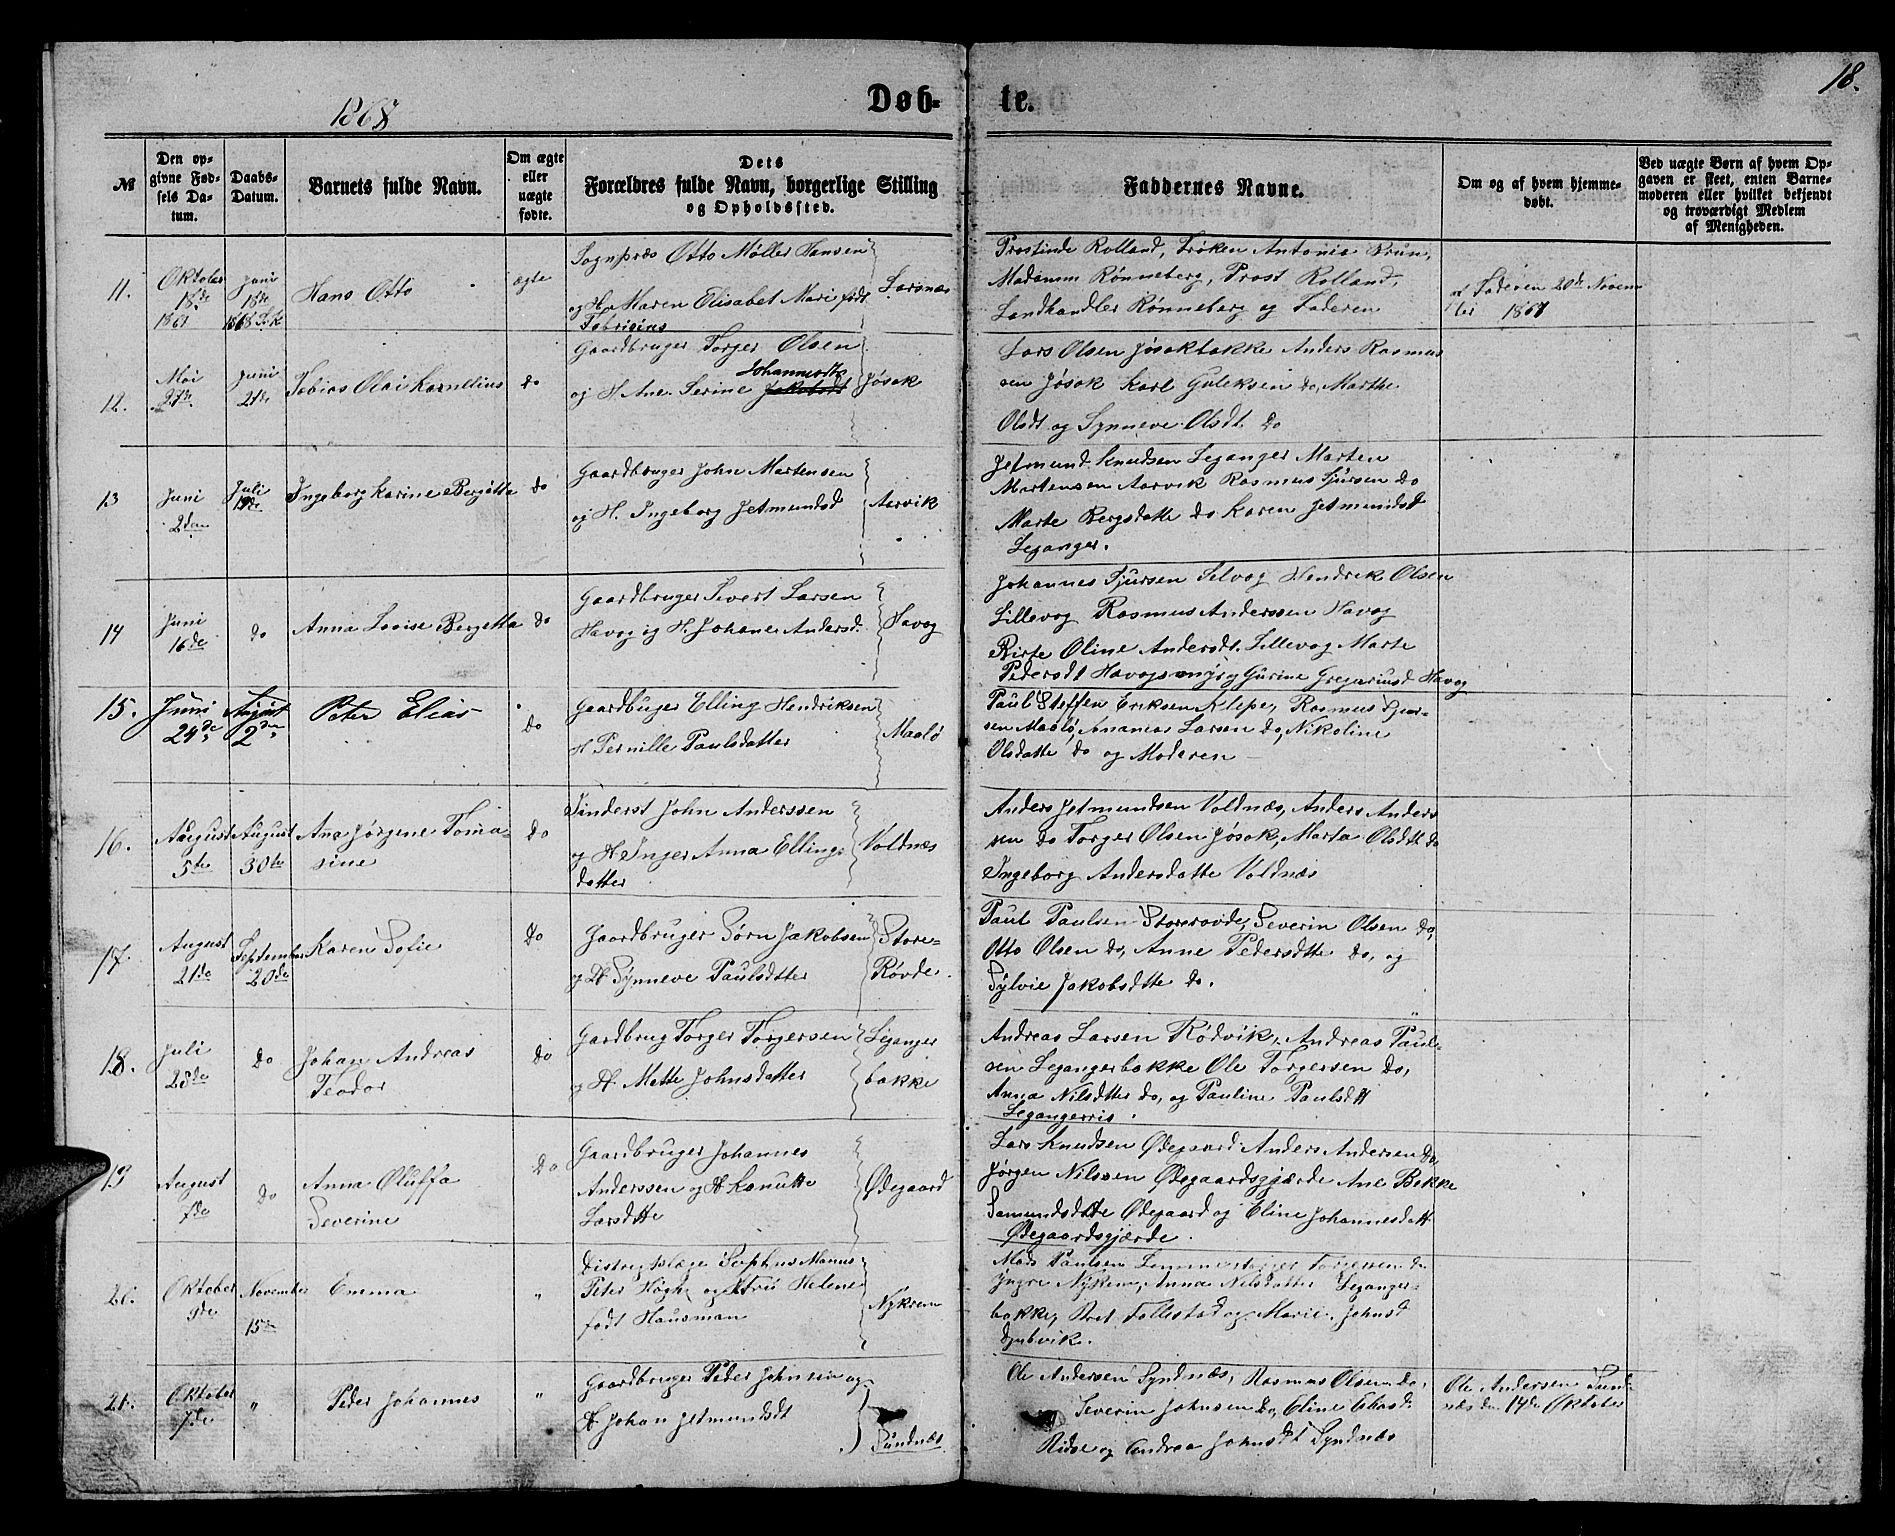 18.
1868
Døb-
te.
№
Den op-
givne Fød-
sels Da-
tum.
Daabs-
Datum.
Barnets fulde Navn.
Om ægte
eller
uægte
fødte.
Dets
Forældres fulde Navn, borgerlige Stilling
og Opholdssted.
Faddernes Navne.
Om og af hvem hjemme-
døbt.
Ved uægte Børn af hvem Op-
gaven er skeet, enten Barne-
moderen eller hvilket bekjendt
og troværdigt Medlem
af Menigheden.
11.
Oktober
18de
1867
Juni
18de
1868
Hans Otto
ægte
Sognpræs Otto Møller Hansen
og H Maren Elisabet Mari født
Fabrisius
Larsnæs
Prostinde Rolland, Frøken Antonia Brun,
Madamm Rønneberg, Prost Rolland,
Landhandler Rønneberg og Faderen
af Faderen 20de Novem
ber 1867
12.
Mai
27de
Juni
21de
Tobias Olai Kornelius
do
Gaardbruger Torger Olsen
Johannesdtt
og H. Ane Serine Jakobsdt
Jøsok
Lars Olsen Jøsokbakke Anders Rasmus
sen Jøsok Karl Guleksen do, Marthe
Olsdt og Synneve Olsdt. do
13
Juni
2den
Juli
19de
Ingeborg Karine Bergitta
do
Gaardbruger John Martensen
og H. Ingeborg Jetmundsd
Aarvik
Jetmund Knudsen Leganger Marten
Martensen Aarvik Rasmus Sjursen do
Marte Bergsdatte do Karen Jetmundsdt
Leganger.
14
Juni
16de
do
Anna Lovise Bergetta
do
Gaardbruger Sivert Larsen
Havog og H. Johane Andersd.
Havog
Johannes Sjursen Selvog Hendrik Olsen
Lillevog Rasmus Anderssen Havog
Birte Oline Andersdt. Lillevog Marte
Pedersdt Havogsmyr og Gurine Gregoriusd Havog
15.
Juni
24de
August
2den
Peter Elias
do
Gaardbuger Elling Hendriksen
H Pernille Paulsdatter
Maalø
Paul Steffen Eriksen Klepe, Rasmus Sjur-
sen Maalø, Annamar Larsen do, Nikoline
Olsdatte do og Moderen
16.
August
5te
August
30te
Ana Jørgene Toma-
sine
do
Inderst John Anderssen
og H Inger Anna Ellings
datter
Voldnæs
Anders Jetmundsen Voldnæs, Anders Anders
sen do Torger Olsen Jøsok, Marta Olsdtt do
Ingeborg Andersdatte Voldnæs
17.
August
21de
September
20de
Karen Sofie
Do
Gaardbruger Sørn Jakobsen
og H Synneve Paulsdtter
Store-
Røvde
Paul Paulsen Storerøvde, Severin Olsen do,
Otto Olsen do, Anne Pedersdtte do, og
Sylvie Jakobsdtte do.
18.
Juli
28de
do
Johan Andreas
Teodor
do
Gardbrug Torger Torgersen
og H. Mette Johnsdatter
Leganger
bakke
Andreas Larsen Rødvik, Andreas Paul-
sen Legangerbakke Ole Torgersen do,
Anna Nilsdtter do, og Pauline Paulsdtt
Legangerris.
19
August
7de
do
Anna Oluffa
Severine
do
Gaardbruger Johannes
Anderssen og H Kanutte
Larsdtte
Ødegaard
Lars Knudsen Ødegaard Anders Andersen do
Jørgen Nilssen Ødegaardsgjærde Ane Bekke
Samundsdtte Ødegaard og Eline Johannesdatt
Ødegaardsgjærde.
20.
Oktober
9de
November
15de
Emma
"
Distriktslæge Sophus Manus
Peter Høgh og Fru Helene
født Hausman
Nykrem
Mads Paulsen Torgersen do
Yngre Nykrem, Anna Nilsdatter Leganger-
bakke, Bret Follestad og Marie Johnsd
Djubvik.
21.
Oktober
7de
"
Peder Johannes
"
Gaardbruger Peder Johnsen og
H Johan Jetmundsdt
Sundnæs
Ole Andersen Syndnæs, Rasmus Olsen do,
Severin Johnsen do, Eline
og Andrea Johnsdt Syndnæs
Ole Andersen Sund
næs den 14de Oktober